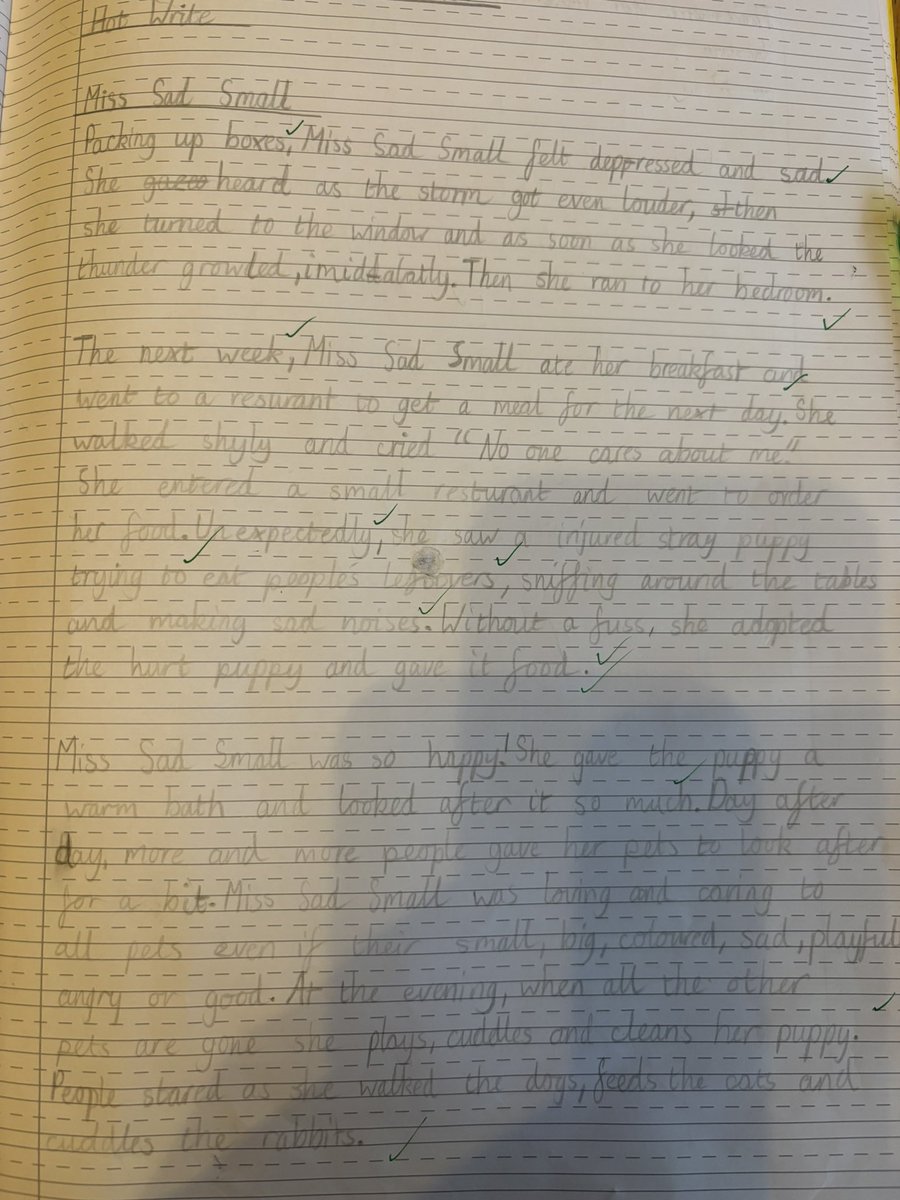 Hot Write
Miss Sad Small
Packing up boxes, Miss Sad Small felt deppressed and sad.
She heard as the storm got even louder, then
she turned to the window and as soon as she looked the
thunder growled, imiddalatly. Then she ran to her bedroom.
The next week, Miss Sad Small ate her breakfast and
went to a resurant to get a meal for the next day. She
walked shyly and cried "No one cares about me."
She entered a small resturant and went to order
her food. Unexpectedly, she saw a injured stray puppy
trying to eat people's leftovers, sniffing around the tables
and making sad noises. Without a fuss, she adopted
the hurt puppy and gave it food.
Miss Sad Small was so happy! She gave the puppy a
warm bath and looked after it so much. Day after
day, more and more people gave her pets to look after
for a bit. Miss Sad Small was loving and caring to
all pets even if their small, big, coloured, sad, playful
angry or good. At the evening, when all the other
pets are gone she plays, cuddles and cleans her puppy.
People stared as she walked the dogs, feeds the cats and
cuddles the rabbits.